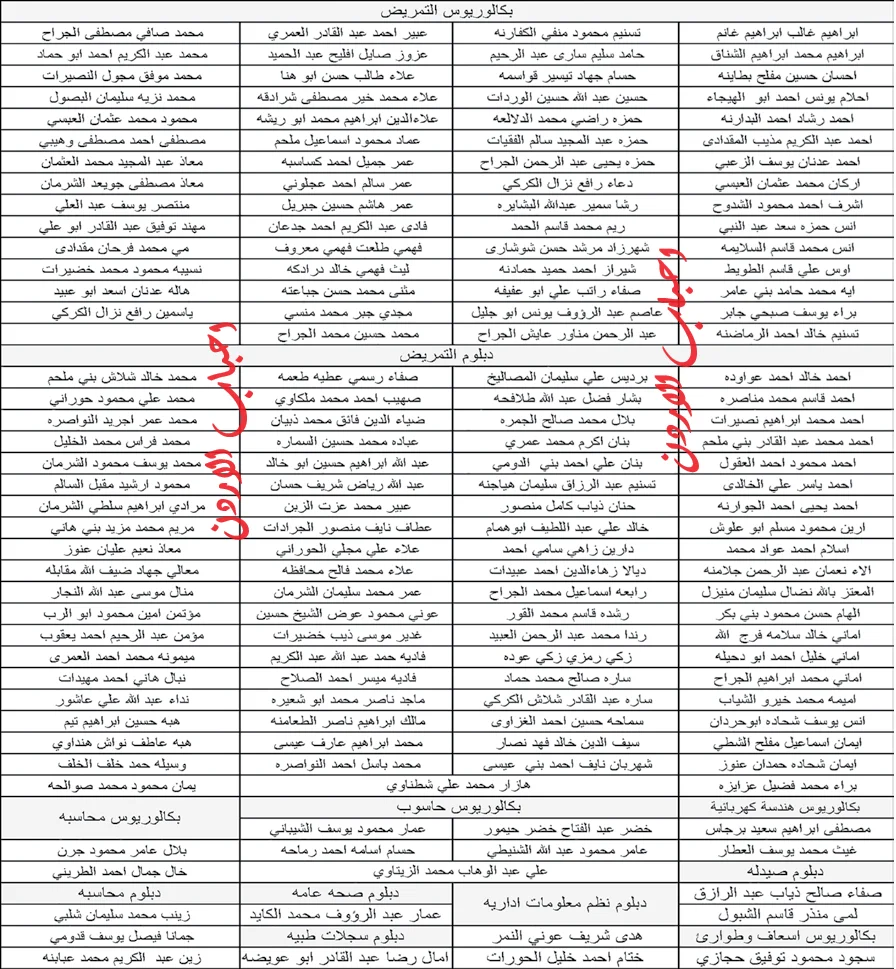 بكالوريوس التمريض
ابراهيم غالب ابراهيم غانم تسنيم محمود منفي الكفارنه عبير احمد عبد القادر العمري محمد صافي مصطفى الجراح
ابراهيم محمد ابراهيم الشناق حامد سليم سارى عبد الرحيم عزوز صايل افليح عبد الحميد محمد عبد الكريم احمد ابو حماد
احسان حسين مفلح بطاينه حسام جهاد تيسير قواسمه علاء طالب حسن ابو هنا محمد موفق مجول النصيرات
احلام يونس احمد ابو الهيجاء حسين عبد الله حسين الوردات علاء محمد خير مصطفى شرادقه محمد نزيه سليمان البصول
احمد رشاد احمد البدارنه حمزه راضي محمد الدلالعه علاءالدين ابراهيم محمد ابو ريشه محمود محمد عثمان العبسي
احمد عبد الكريم مذيب المقدادى حمزه عبد المجيد سالم الفقيات عماد محمود اسماعيل ملحم مصطفى احمد مصطفى وهيبي
احمد عدنان يوسف الزعبي حمزه يحيى عبد الرحمن الجراح عمر جميل احمد كساسبه معاذ عبد المجيد محمد العثمان
اركان محمد عثمان العبسي دعاء رافع نزال الكركي عمر سالم احمد عجلوني معاذ مصطفى جويعد الشرمان
اشرف احمد محمود الشدوح رشا سمير عبدالله البشايره عمر هاشم حسين جبريل منتصر يوسف عبد العلي
انس حمزه سعد عبد النبي ريم محمد قاسم الحمد فادى عبد الكريم احمد جدعان مهند توفيق عبد القادر ابو علي
انس محمد قاسم السلايمه شهرزاد مرشد حسن شوشارى فهمي طلعت فهمي معروف مي محمد فرحان مقدادى
اوس علي قاسم الطويط شيراز احمد حميد حمادنه ليث فهمي خالد درادكه نسيبه محمود محمد خضيرات
ايه محمد حامد بني عامر صفاء راتب علي ابو عفيفه مثنى محمد حسن جباعته هاله عدنان اسعد ابو عبيد
براء يوسف صبحي جابر عاصم عبد الرؤوف يونس ابو جليل مجدي جبر محمد منسي ياسمين رافع نزال الكركي
تسنيم خالد احمد الرماضنه عبد الرحمن مناور عايش الجراح محمد حسين محمد الجراح
دبلوم التمريض
احمد خالد احمد عواوده برديس علي سليمان المصاليخ صفاء رسمي عطيه طعمه محمد خالد شلاش بني ملحم
احمد قاسم محمد مناصره بشار فضل عبد الله طلافحه صهيب احمد محمد ملكاوي محمد علي محمود حوراني
احمد محمد ابراهيم نصيرات بلال محمد صالح الجمره ضياء الدين فائق محمد ذبيان محمد عمر اجريد النواصره
احمد محمد عبد القادر بني ملحم بنان اكرم محمد عمري عباده محمد حسين السماره محمد فراس محمد الخليل
احمد محمود احمد العقول بنان علي احمد بني الدومي عبد الله ابراهيم حسين ابو خالد محمد يوسف محمود الشرمان
احمد ياسر علي الخالدى تسنيم عبد الرزاق سليمان هياجنه عبد الله رياض شريف حسان محمود ارشيد مقبل السالم
احمد يحيى احمد الجوارنه حنان ذياب كامل منصور عبير محمد عزت الزبن مرادي ابراهيم سلطي الشرمان
ارين محمود مسلم ابو علوش خالد علي عبد اللطيف ابوهمام عطاف نايف منصور الجرادات مريم محمد مزيد بني هاني
اسلام احمد عواد محمد دارين زاهي سامي احمد علاء علي مجلي الحوراني معاذ نعيم عليان عنوز
الاء نعمان عبد الرحمن جلامنه ديالا زهاءالدين احمد عبيدات علاء محمد فالح محافظه معالي جهاد ضيف الله مقابله
المعتز بالله نضال سليمان منيزل رابعه اسماعيل محمد الجراح عمر محمد سليمان الشرمان منال موسى عبد الله النجار
الهام حسن محمود بني بكر رشده قاسم محمد القور عوني محمود عوض الشيخ حسين مؤتمن امين محمود ابو الرب
اماني خالد سلامه فرج الله رندا محمد عبد الرحمن العبيد غدير موسى ذيب خضيرات مؤمن عبد الرحيم احمد يعقوب
اماني خليل احمد ابو دحيله زكي رمزي زكي عوده فاديه حمد عبد الله عبد الكريم ميمونه محمد احمد العمرى
اماني محمد ابراهيم الجراح ساره صالح محمد حماد فاديه ميسر احمد الصلاح نبال هاني احمد مهيدات
اميمه محمد خيرو الشياب ساره عبد القادر شلاش الكركي ماجد ناصر محمد ابو شعيره نداء عبد الله علي عاشور
انس يوسف شحاده ابوحردان سماحه حسين احمد الغزاوى مالك ابراهيم ناصر الطعامنه هبه حسين ابراهيم تيم
ايمان اسماعيل مفلح الشطي سيف الدين خالد فهد نصار محمد ابراهيم عارف عيسى هبه عاطف نواش هنداوي
ايمان شحاده حمدان عنوز شهربان نايف احمد بني عيسى محمد باسل احمد النواصره وسيله حمد خلف الخلف
براء محمد فضيل عزايزه هازار محمد علي شطناوي يمان محمود محمد صوالحه
بكالوريوس هندسة كهربائية بكالوريوس حاسوب بكالوريوس محاسبه
مصطفى ابراهيم سعيد برجاس خضر عبد الفتاح خضر حيمور عمار محمود يوسف الشيباني
غيث محمد يوسف العطار عامر محمود عبد الله الشنيطي حسام اسامه احمد رماحه بلال عامر محمود جرن
دبلوم صيدله علي عبد الوهاب محمد الزيتاوي خال جمال احمد الطريني
صفاء صالح ذياب عبد الرازق دبلوم نظم معلومات اداريه دبلوم صحه عامه دبلوم محاسبه
لمى منذر قاسم الشبول عمار عبد الرؤوف محمد الكايد زينب محمد سليمان شلبي
بكالوريوس اسعاف وطوارئ هدى شريف عوني النمر دبلوم سجلات طبيه جمانا فيصل يوسف قدومي
سجود محمود توفيق حجازي ختام احمد خليل الحورات امال رضا عبد القادر ابو عويضه زين عبد الكريم محمد عبابنه